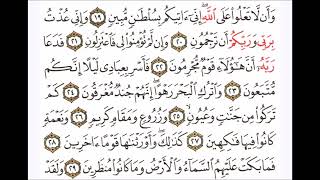 وَأَن لَّا تَعْلُوا۟ عَلَى ٱللَّهِ ۖ إِنِّىٓ ءَاتِيكُم بِسُلْطَٰنٍ مُّبِينٍ ١٩ وَإِنِّى عُذْتُ
بِرَبِّى وَرَبِّكُمْ أَن تَرْجُمُونِ ٢٠ وَإِن لَّمْ تُؤْمِنُوا۟ لِى فَٱعْتَزِلُونِ ٢١ فَدَعَا
رَبَّهُۥٓ أَنَّ هَٰٓؤُلَآءِ قَوْمٌ مُّجْرِمُونَ ٢٢ فَأَسْرِ بِعِبَادِى لَيْلًا إِنَّكُم
مُّتَّبَعُونَ ٢٣ وَٱتْرُكِ ٱلْبَحْرَ رَهْوًا ۖ إِنَّهُمْ جُندٌ مُّغْرَقُونَ ٢٤ كَمْ
تَرَكُوا۟ مِن جَنَّٰتٍ وَعُيُونٍ ٢٥ وَزُرُوعٍ وَمَقَامٍ كَرِيمٍ ٢٦ وَنَعْمَةٍ
كَانُوا۟ فِيهَا فَٰكِهِينَ ٢٧ كَذَٰلِكَ ۖ وَأَوْرَثْنَٰهَا قَوْمًا ءَاخَرِينَ ٢٨
فَمَا بَكَتْ عَلَيْهِمُ ٱلسَّمَآءُ وَٱلْأَرْضُ وَمَا كَانُوا۟ مُنظَرِينَ ٢٩ وَلَقَدْ